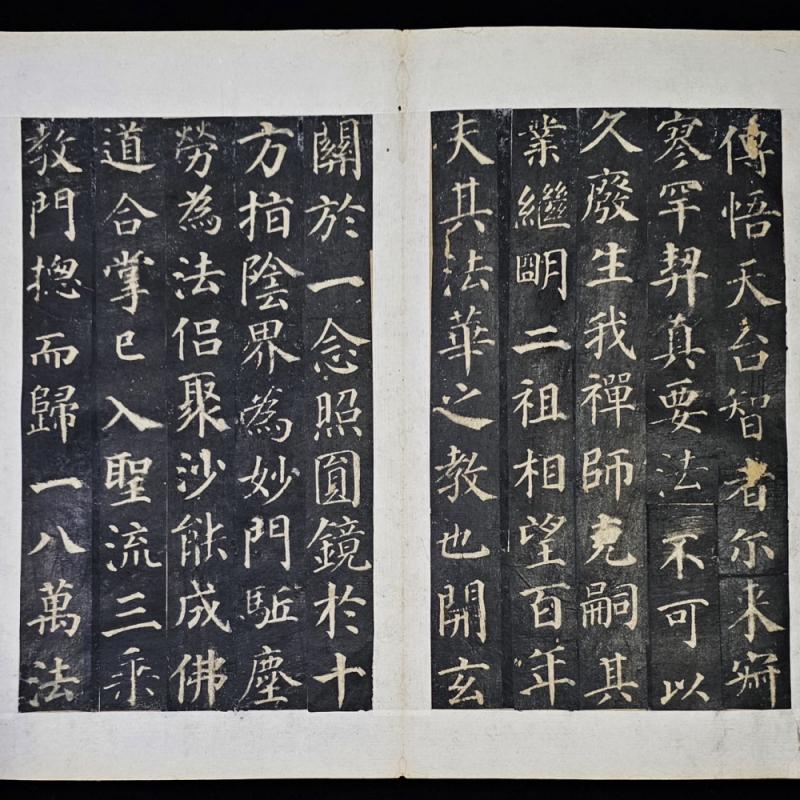 傳悟天台智者尒来寂
寥罕契真要法不可以
久廢生我禪師克嗣其
業繼明二祖相望百年
夫其法華之教也開玄
關於一念照圓鏡於十
方指陰界為妙門駈塵
勞為法侶聚沙能成佛
道合掌已入聖流三乘
教門揔而歸一八萬法